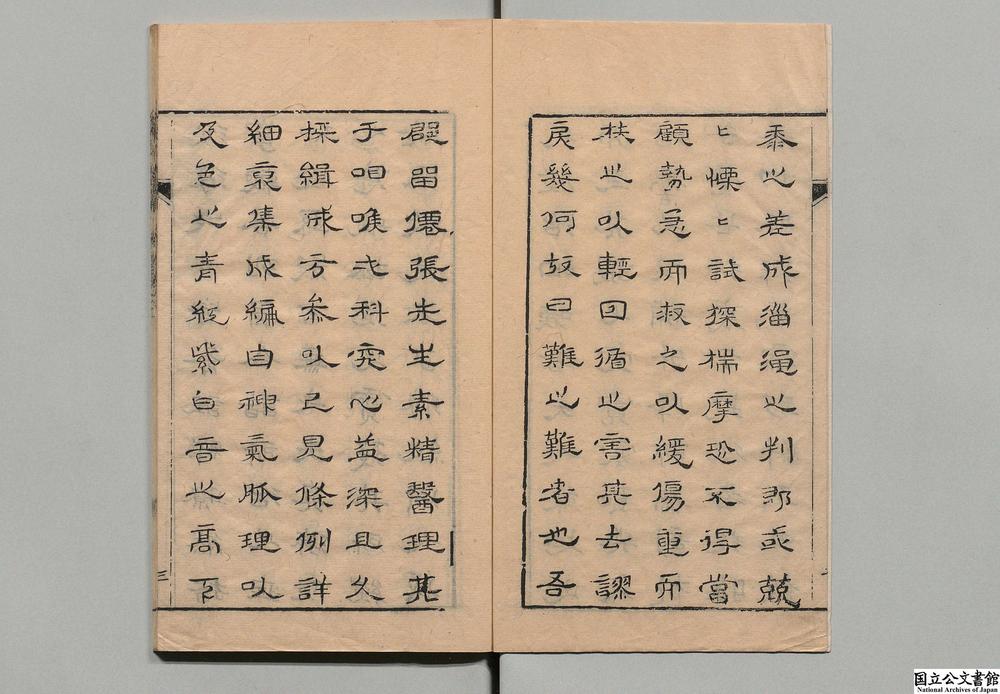 黍之差成淄澠之判即或兢
匕慄匕試探揣摩恐不得當
顧勢急而救之以緩傷重而
扶之以輕因循之害其去謬
戾幾何故曰難之難者也吾
邑留僊張先生素精醫理其
于咽喉弍科究心益深且久
採緝成方叅以己見條例詳
細裒集成編自神氣脈理以
及色之青紅紫白音之高下
三
国立公文書館
National Archives of Japan